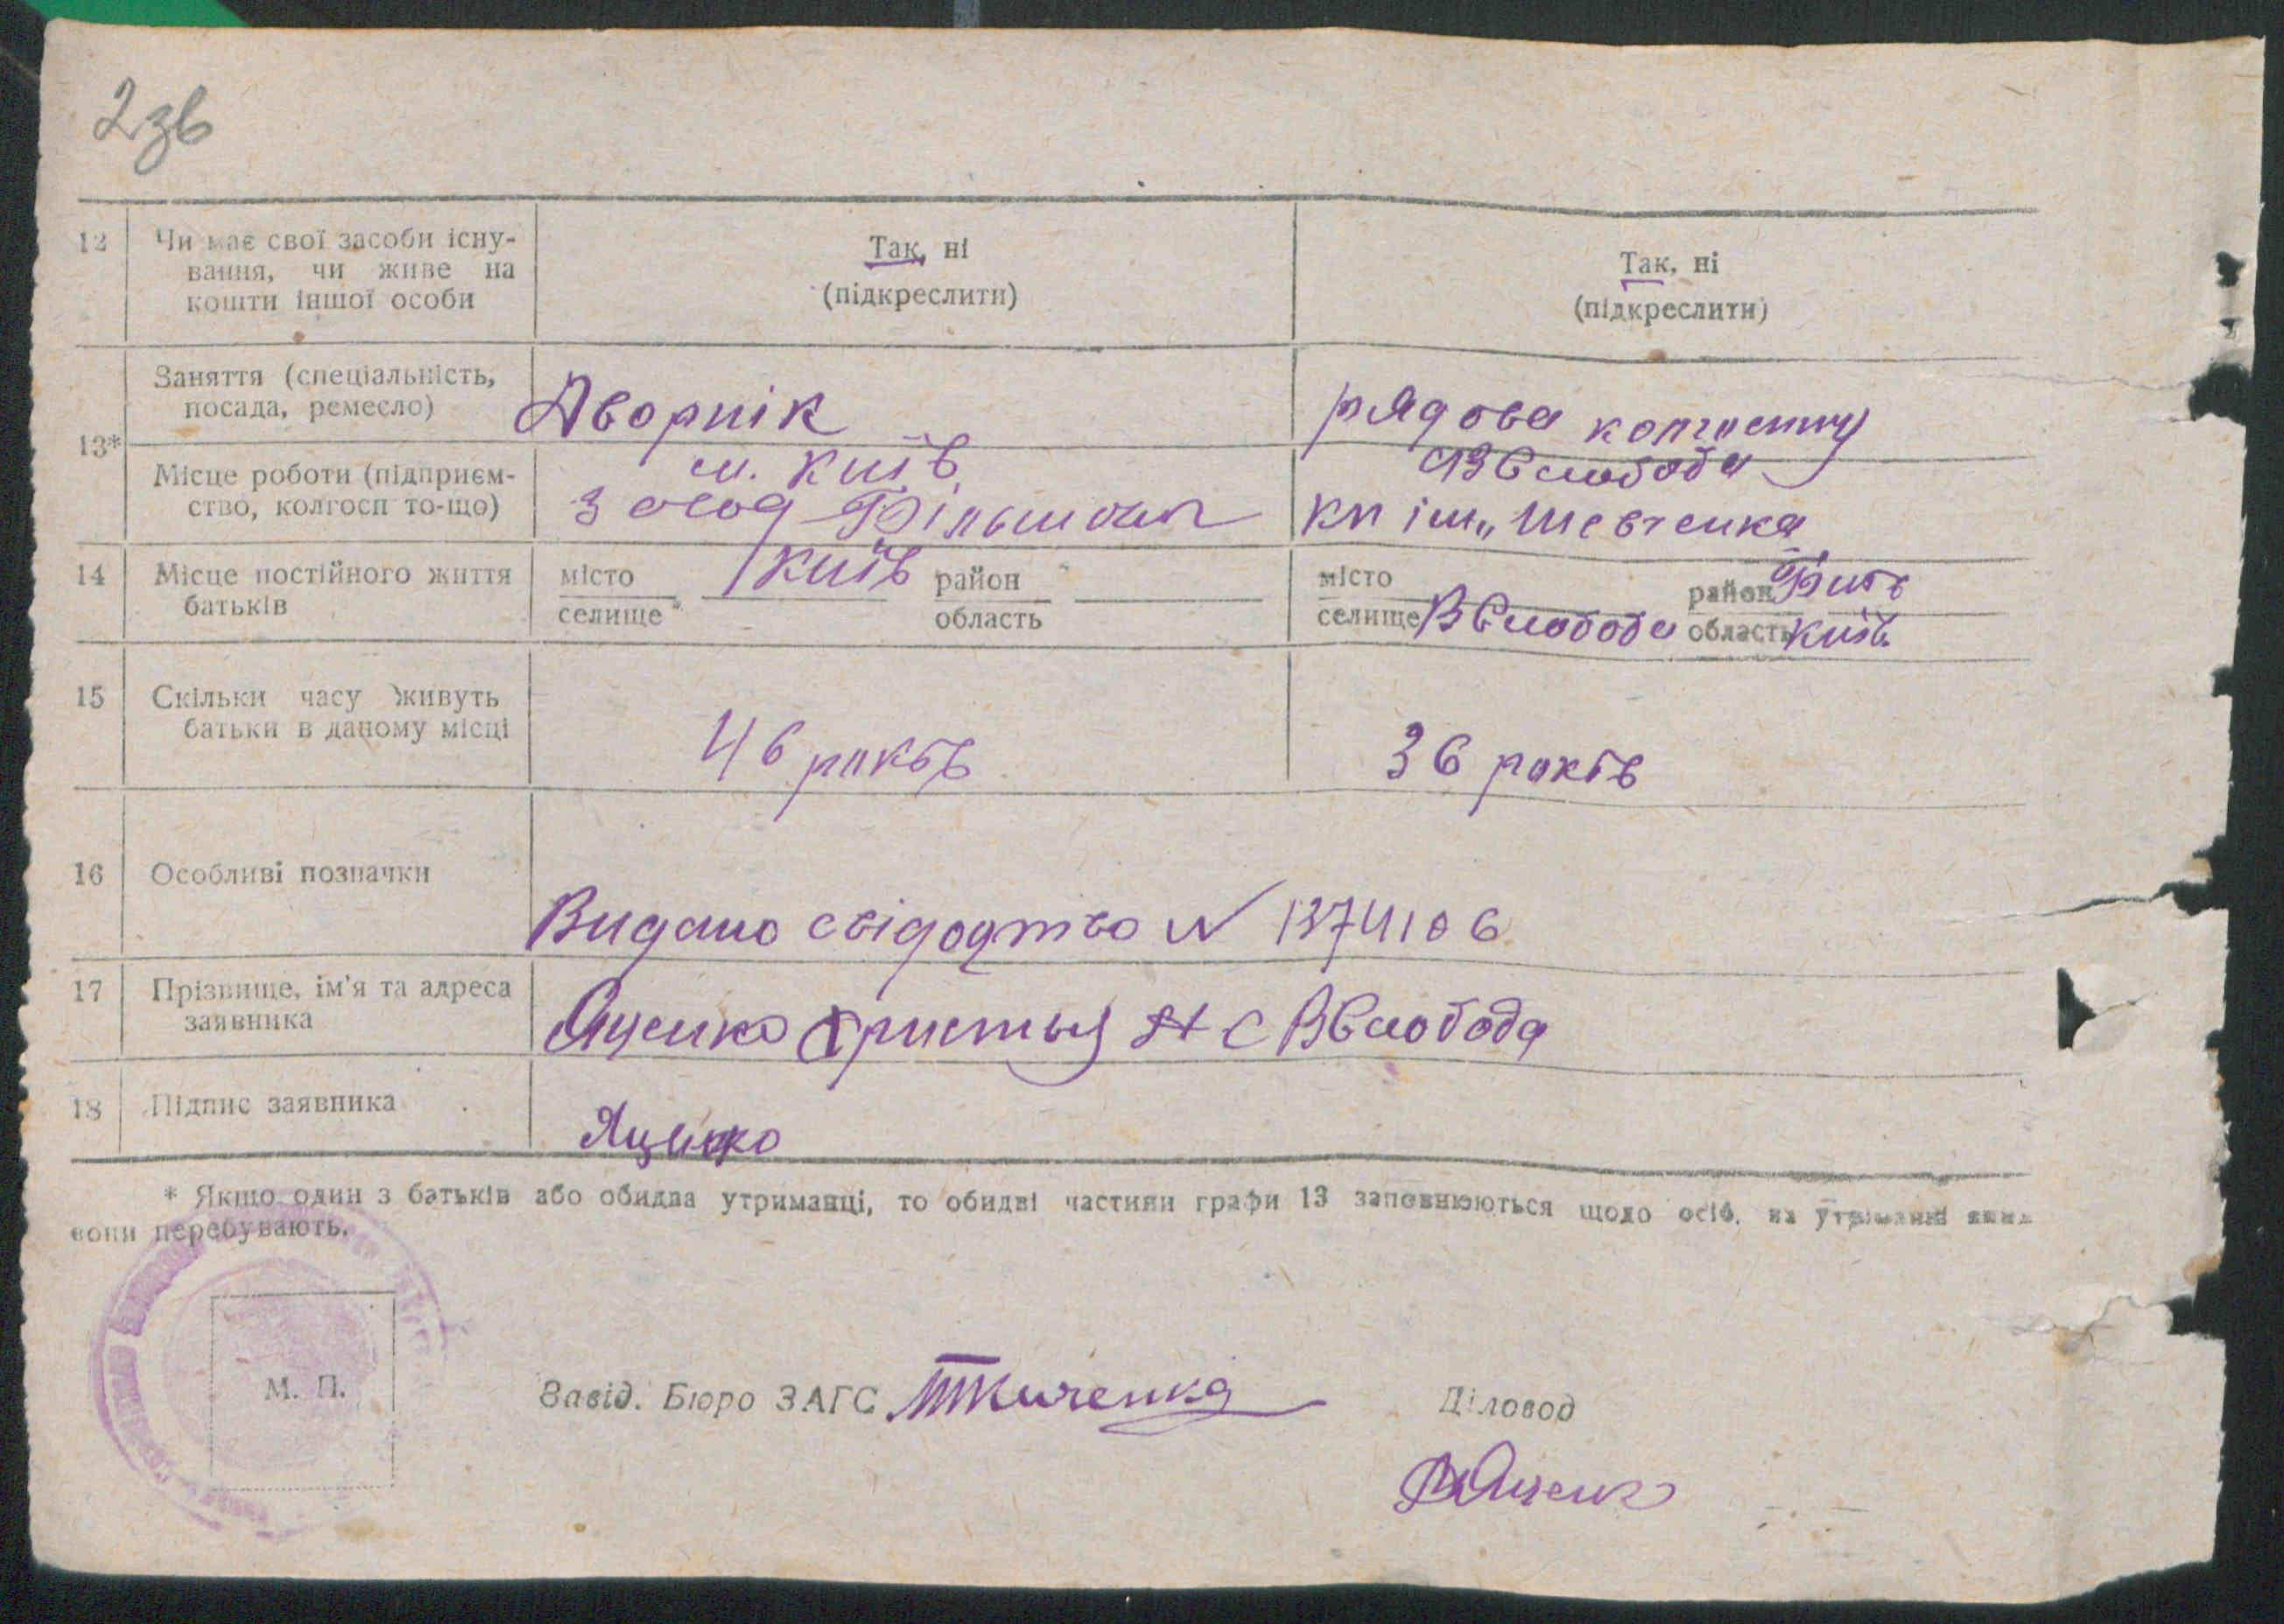 2зв
12 Чи має свої засоби існу-
вання, чи живе на
кошти іншої особи
Так, ні
(підкреслити)
Так, ні
(підкреслити)
13*
Заняття (спеціальність,
посада, ремесло)
Дворнік
рядова
Місце роботи (підприєм-
ство, колгосп то-що)
м. Київ
З
В Слобода
кп ім„ Шевченка
14 Місце постійного життя
батьків
місто Київ район
селище область
місто район
селище В Слобода область Київ
15 Скільки часу живуть
батьки в даному місці
46 років
36 років
16 Особливі позначки
Видано свідодтво N 1374106
17 Прізвище, ім'я та адреса
заявника
Яценко Христья Я с В Слобода
18 Підпис заявника
Яценко
* Якщо один з батьків або обидва утриманці, то обидві частини графи 13 заповнюються щодо осіб, на утриманні яких
вони перебувають.
М. П.
Завід. Бюро ЗАГС
Діловод